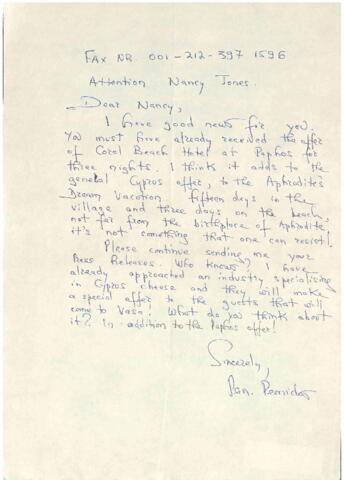 FAX NR. 001-212-397 1596
Attention Nancy Jones.
Dear Nancy,
I have good news for you.
You must have already received the offer
of Coral Beach Hotel at Paphos for
three nights. I think it adds to the
general Cyprus offer, to the Aphrodite's
Dream Vacation, fifteen days in the
village and three days on the beach,
not far from the birthplace of Aphrodite,
it's not something that one can resist!
Please continue sending me your
Press Releases. Who knows, I have
already approached an industry specialising
in Cyprus cheese and they will make
a special offer to the guests that will
come to Vasa! What do you think about
it? In addition to the Paphos offer!
Sincerely,
Pan.